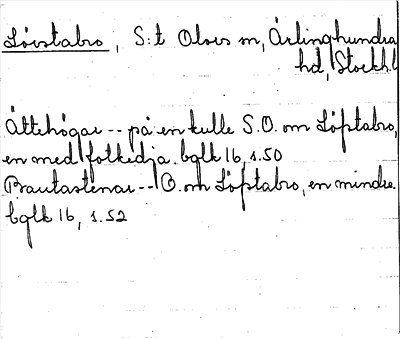 Lövstabro, S:t Olovs sn, Ärlinghundra
hd, Stockh.l
Ättehögar -- på en kulle S.O. om Löfstabro,
en med fotkedja. bglk 16, s.50
Bautastenar -- O. om Löfstabro, en mindre.
bglk 16, s.52